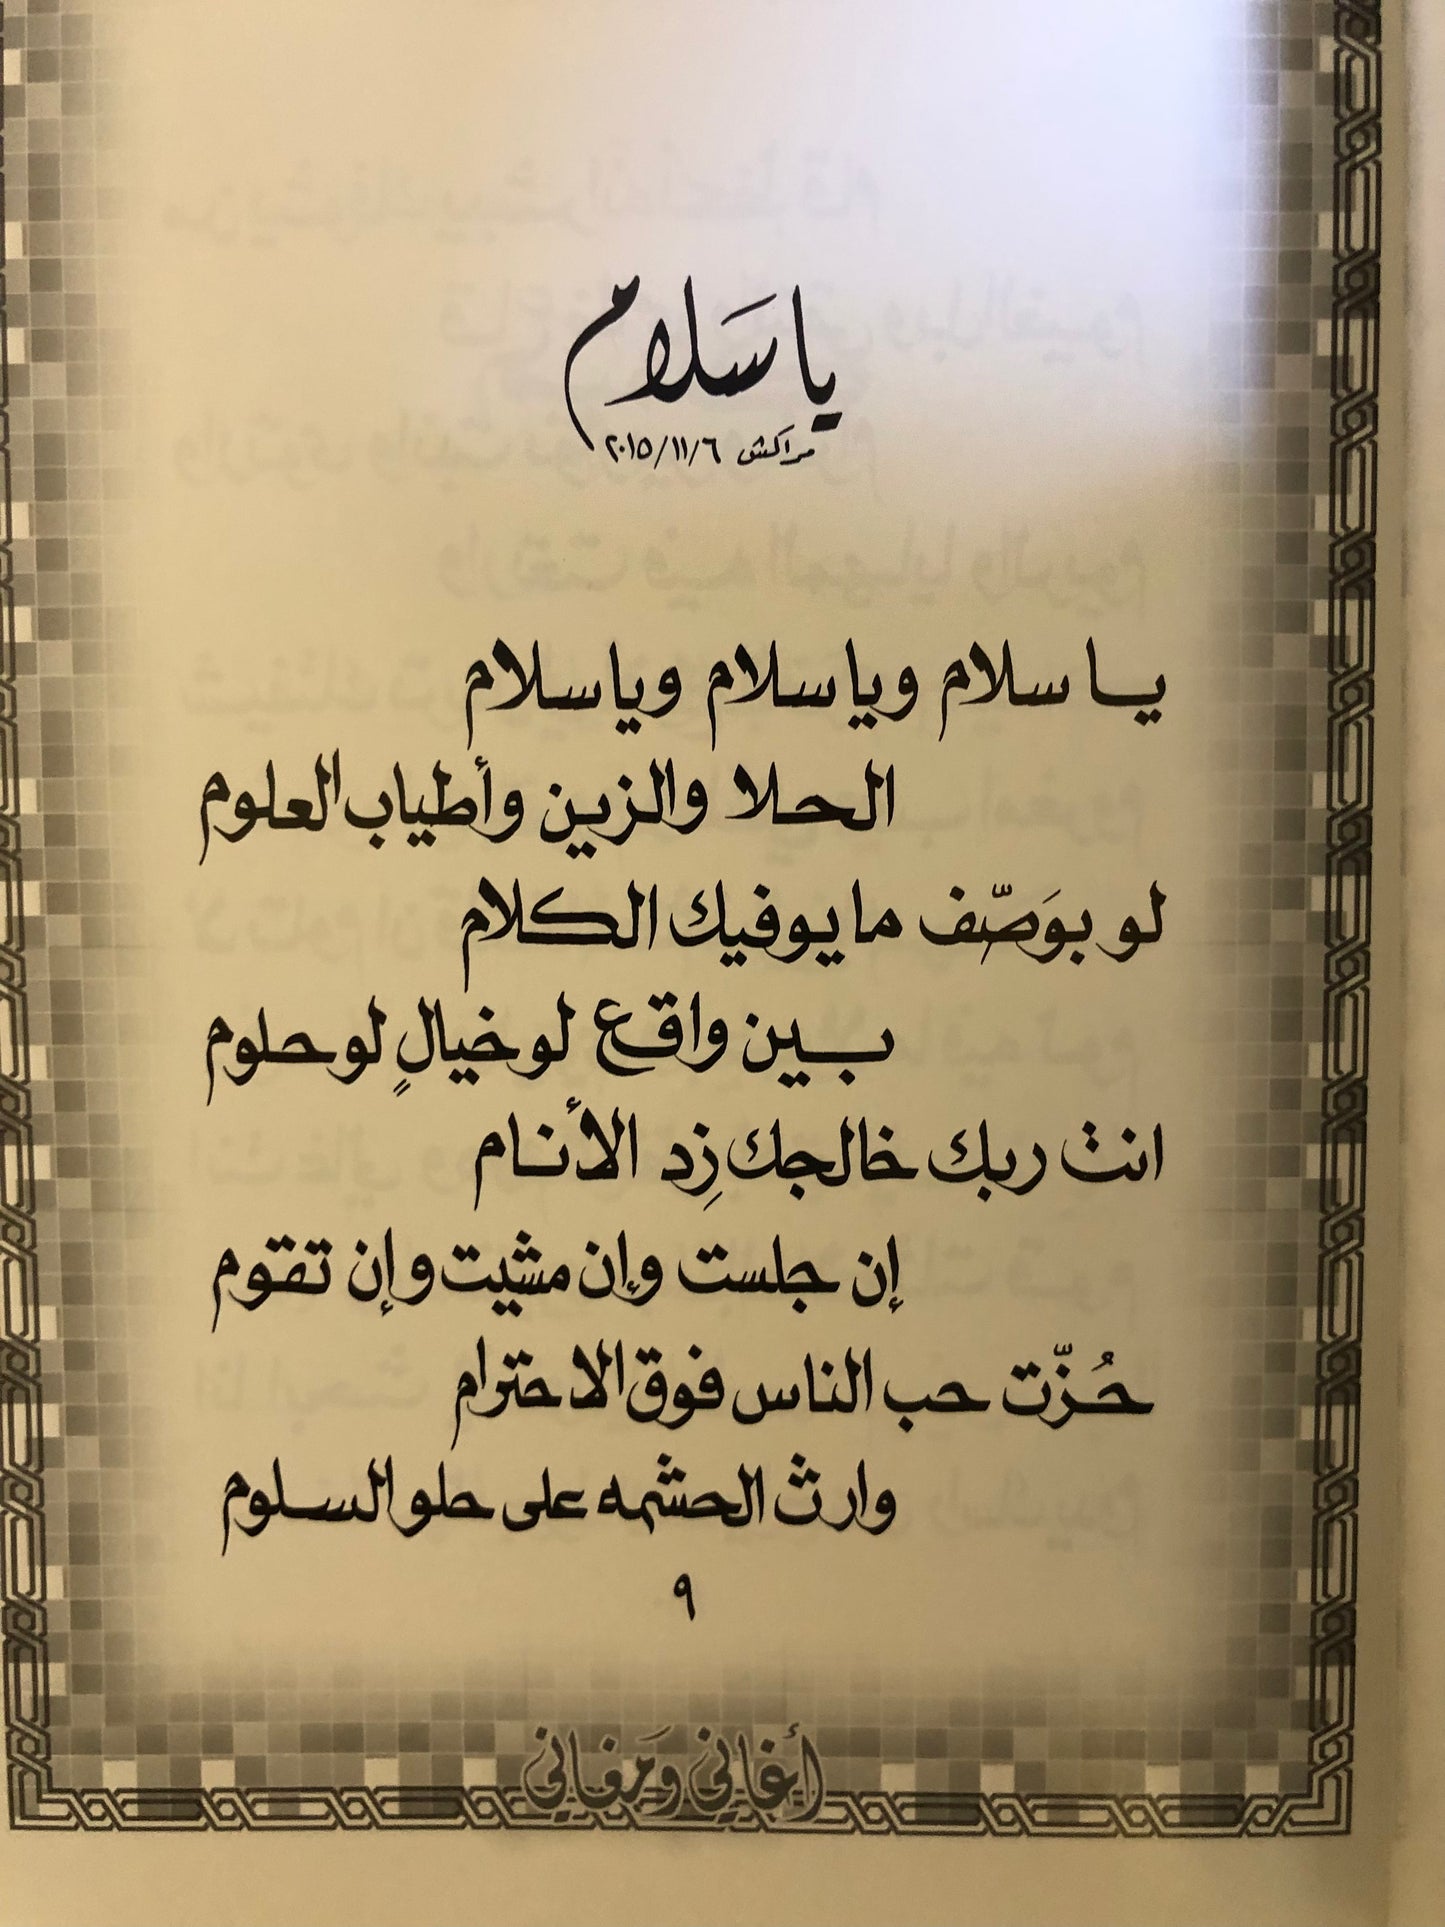 يا سلام
مراكش ٢٠١٥/١١/٦
يا سلام ويا سلام ويا سلام
الحلا والزين وأطياب العلوم
لو بوَصّف ما يوفيك الكلام
بين واقع لو خيالٍ لو حلوم
انت ربك خالجك زِد الأنام
إن جلست وإن مشيت وإن تقوم
حُزّت حب الناس فوق الاحترام
وارث الحشمه على حلو السلوم
٩
أغاني ومَغاني